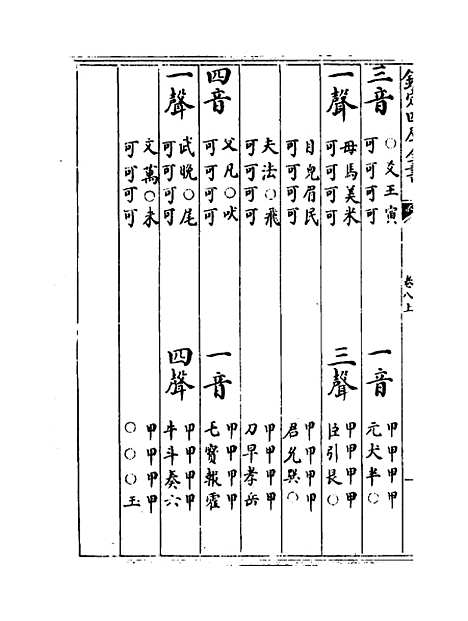 欽定四庫全書 卷八上
三音 ○爻王寅 可可可可 一音 甲甲甲甲 元犬半○
一聲 母馬美米 可可可可 三聲 甲甲甲甲 臣引艮○
目皃眉民 可可可可 甲甲甲甲 君允巽○
夫法○飛 可可可可 甲甲甲甲 刀早孝岳
四音 父凡○吠 可可可可 一音 甲甲甲甲 毛寶報霍
一聲 武晚○尾 可可可可 四聲 甲甲甲甲 牛斗奏六
文萬○未 可可可可 甲甲甲甲 ○○○玉